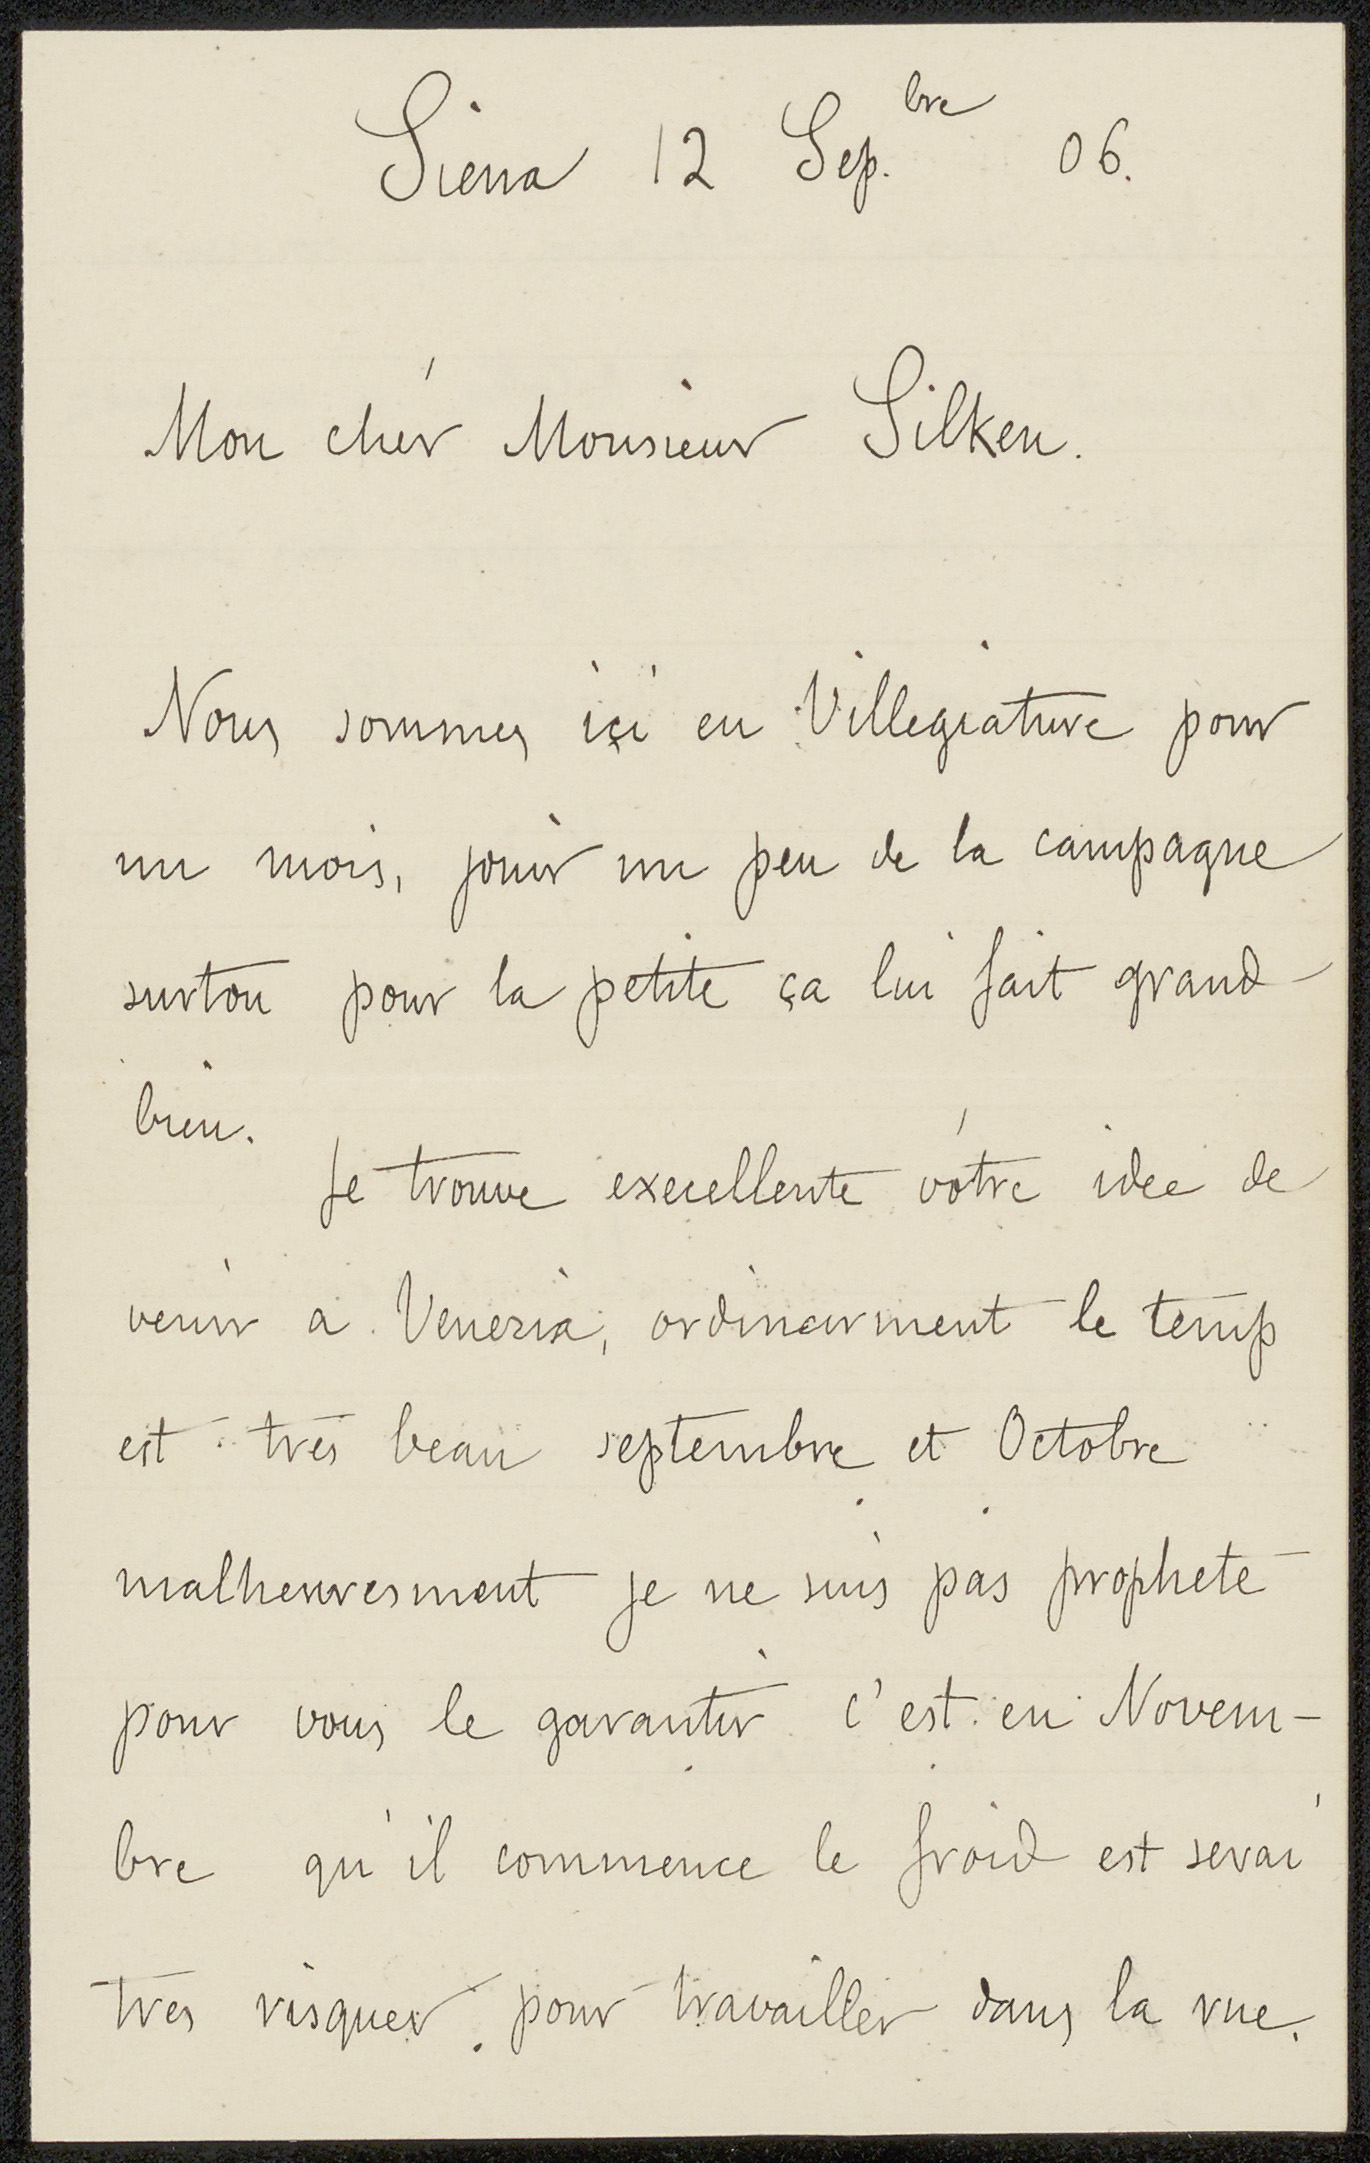 Siena 12 Sep.bre 06.
Mon chér Monsieur Silken.
Nous sommes içi en Villegiature pour
un mois, jouir un peu de la campagne
surtou pour la petite ça lui fait grand
bien.
Je trouve execellente vótre idee de
venir a Venezia, ordinairment le temp
est tres beau septembre et Octobre
malheuresment je ne suis pas prophete
pour vous le garantir c'est en Novem-
bre qu'il commence le froid est serai
tres risquer pour travailler dans la rue.